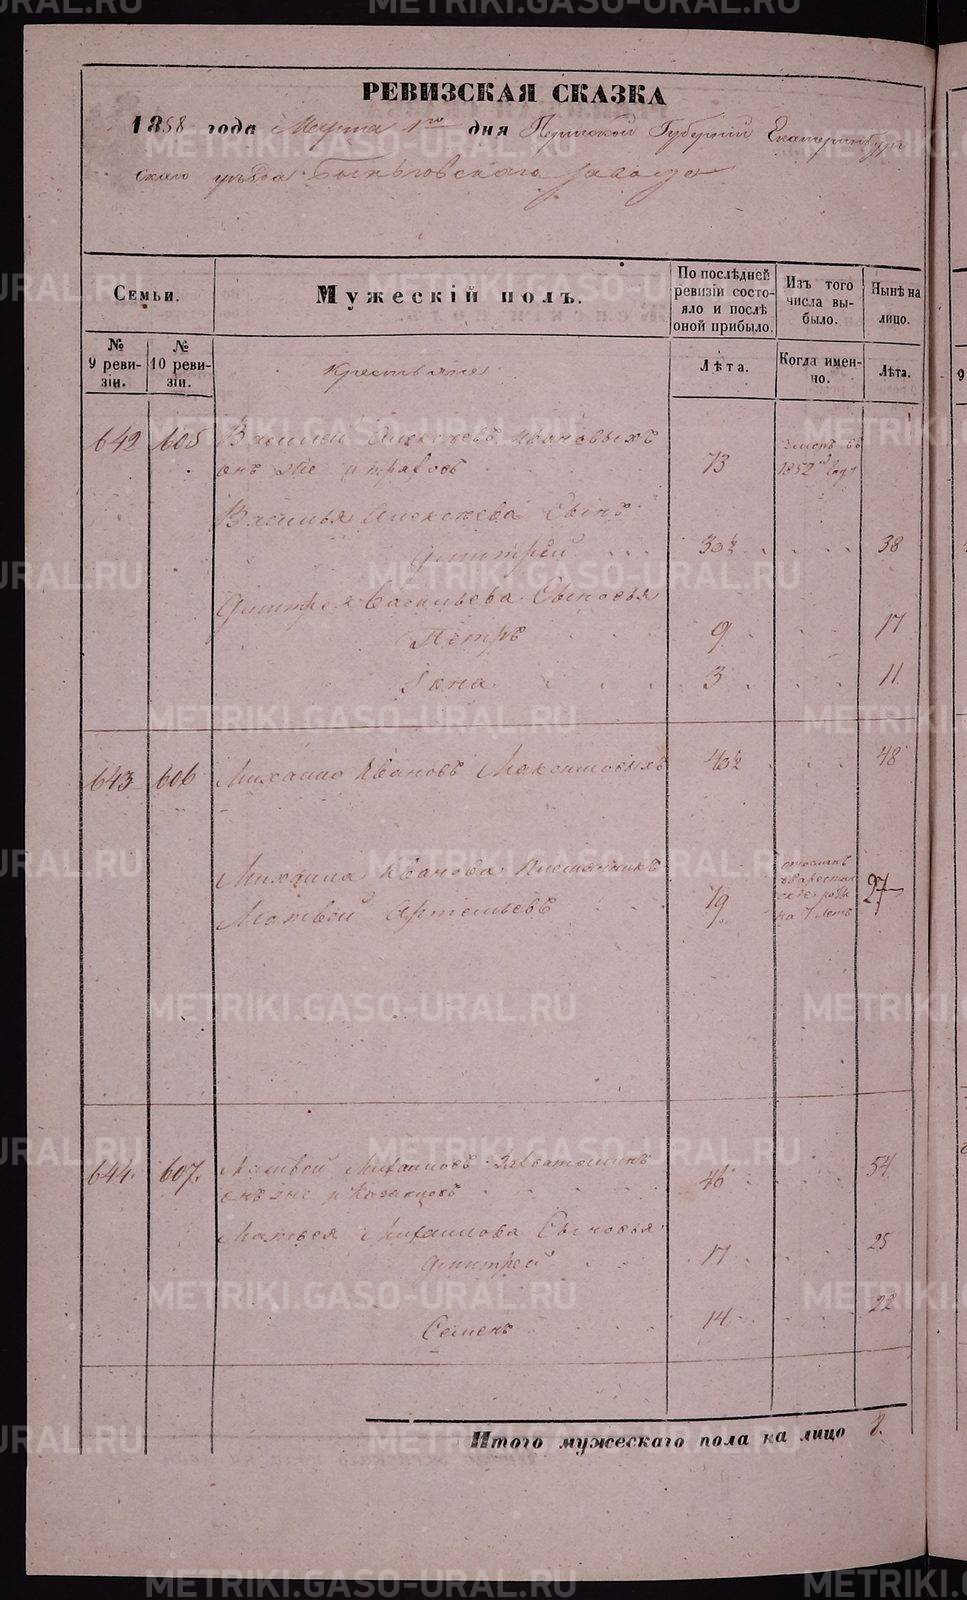 РЕВИЗСКАЯ СКАЗКА
1858 года Марта 1го дня Пермской Губерніи Екатеринбург
скаго уѣзда Быньговскаго завода
Семьи.
Мужескій полъ.
По послѣдней ревизіи состояло и послѣ оной прибыло.
Изъ того числа выбыло.
Нынѣ на лицо.
№ 9 ревизіи.
№ 10 ревизіи.
Лѣта.
Когда именно.
Лѣта.
Крестьяне
642 605 Василий Алексѣевъ Ивановыхъ
онъ же 73 умеръ въ 1852м году
Василья Алексѣева Сынъ
Дмитрей 30½ 38
Дмитрея Васильева Сыновья
Петръ 9 17
Іона 3 11
643 606 Михайло Ивановъ 40½ 48
Михайла Иванова племянникъ
Матвей Артемьевъ 19 27
на 7 летъ
644. 607. Матвей Михайловъ
онъ же и Казанцовъ 46 54
Матвея Михайлова Сыновья
Дмитрей 17 25
Семенъ 14 22
Итого мужескаго пола на лицо 8.
METRIKI.GASO-URAL.RU